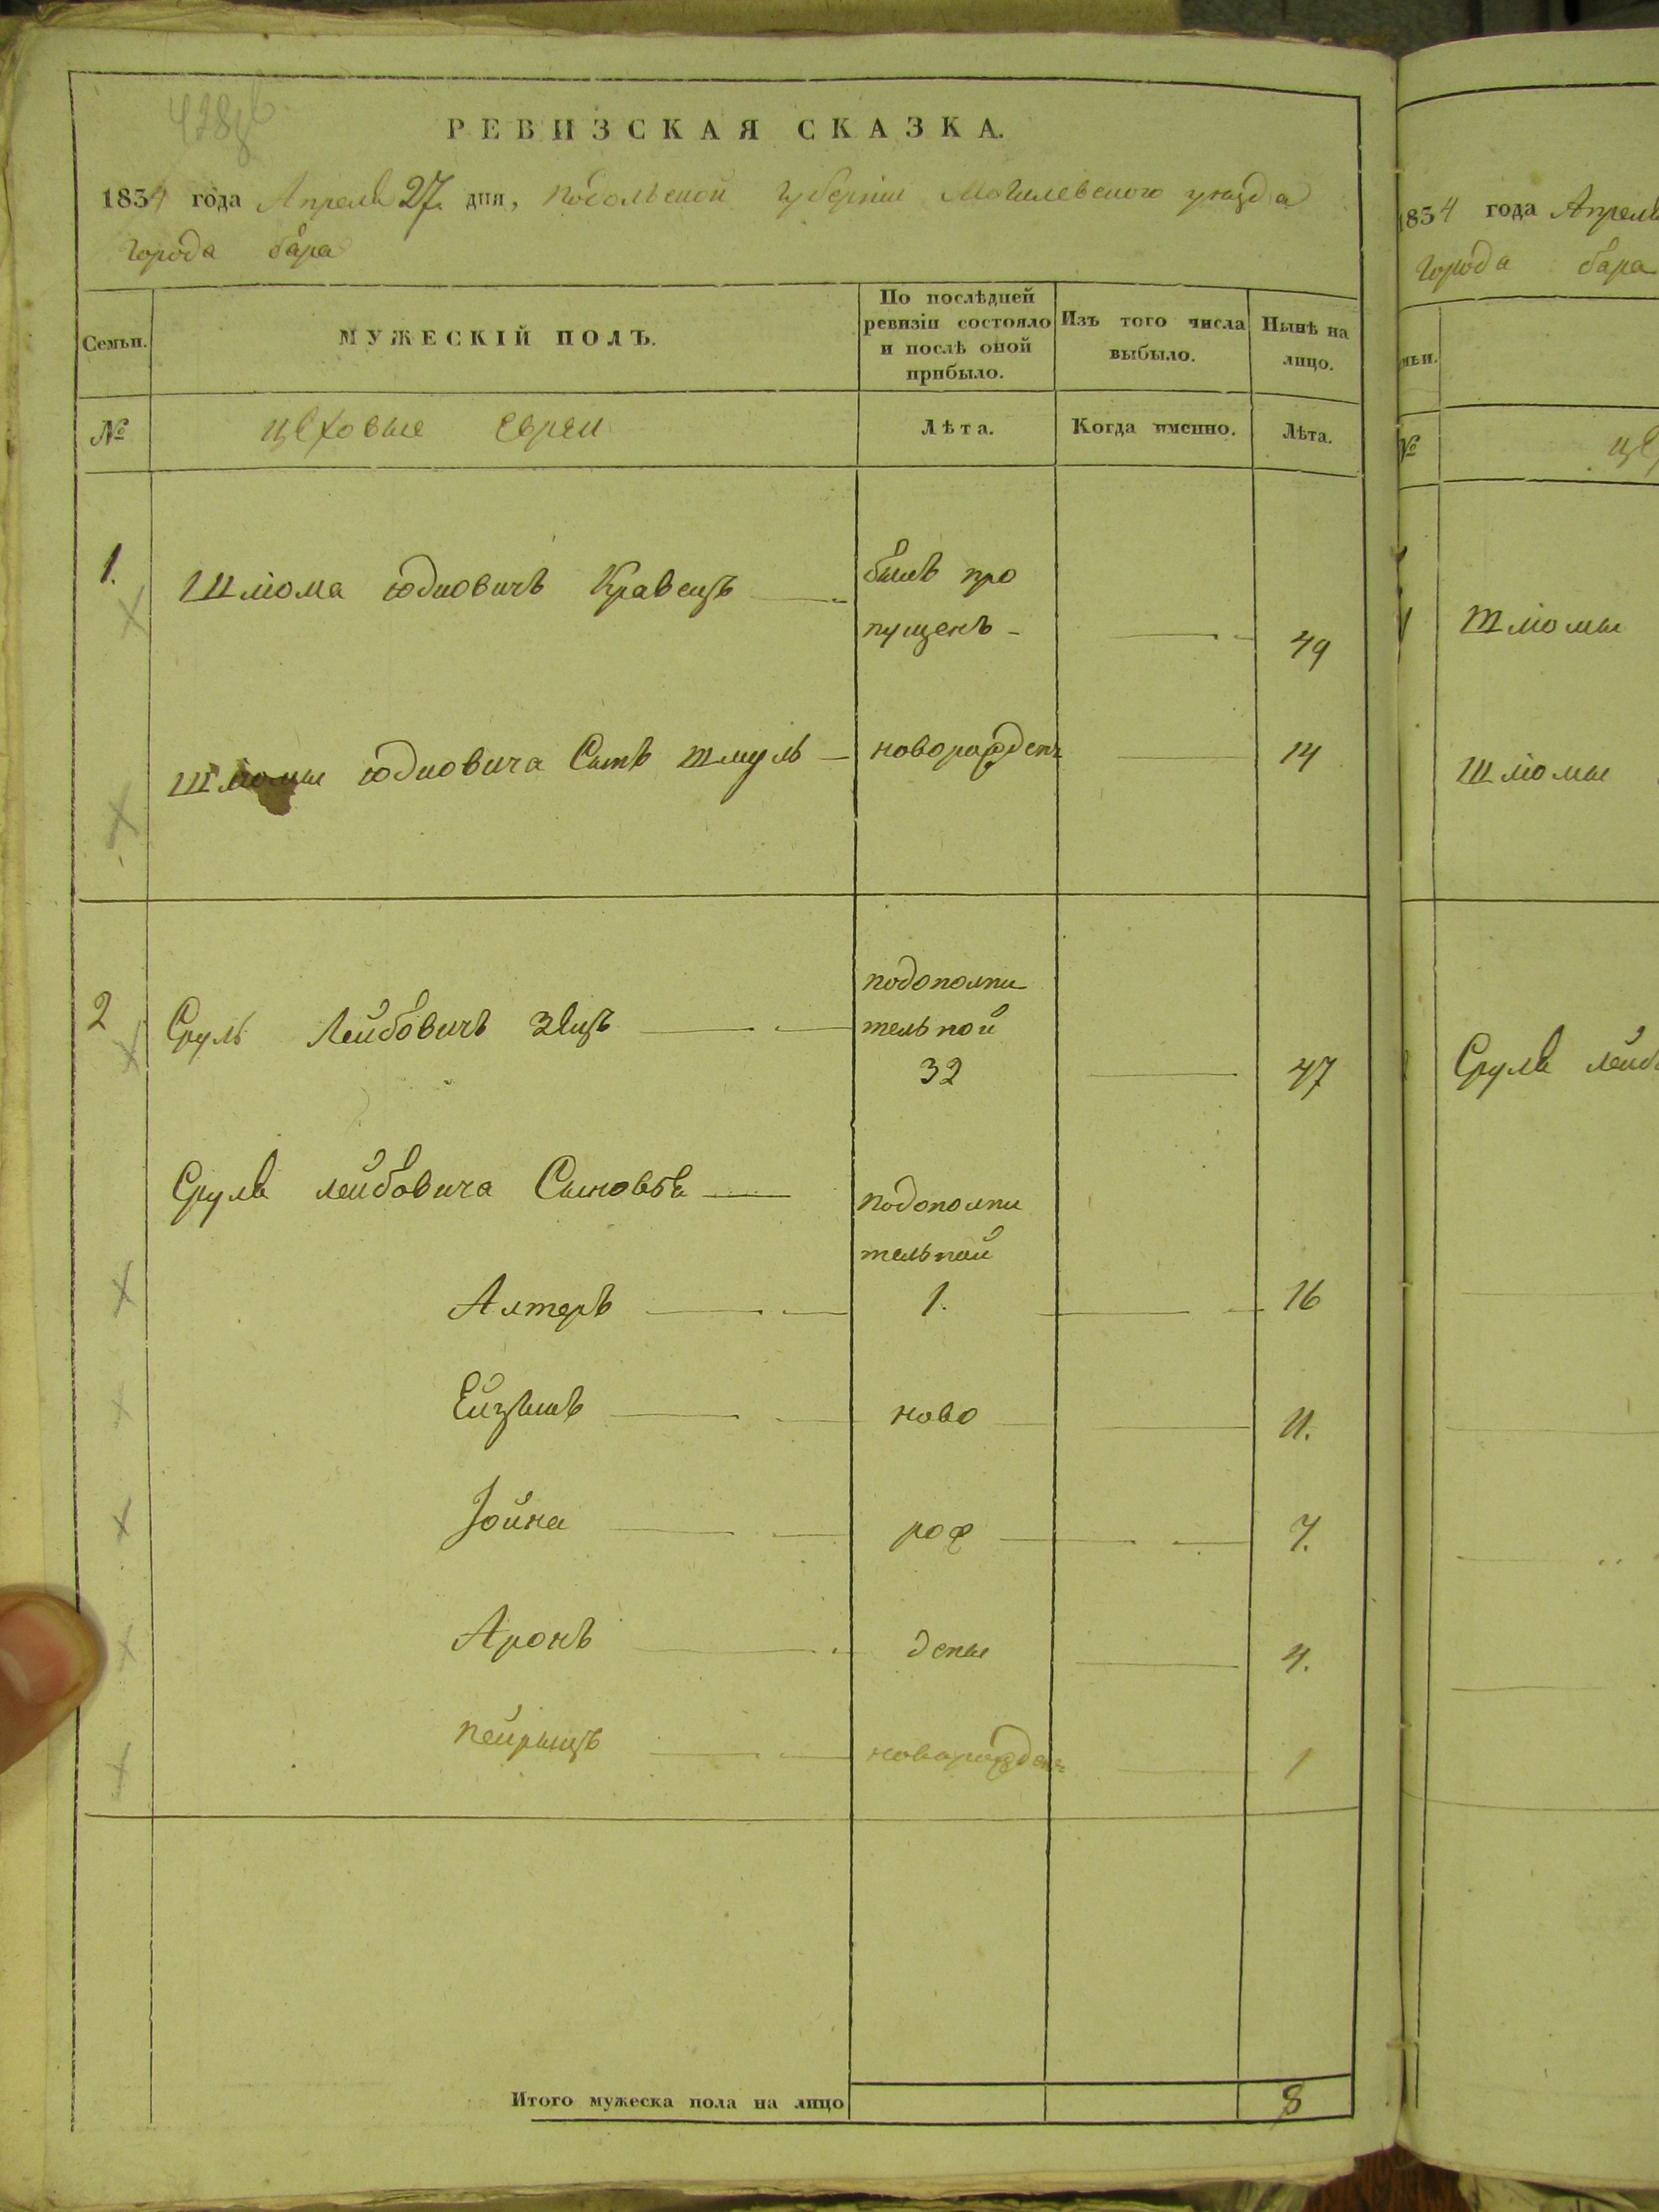 РЕВИЗСКАЯ СКАЗКА.
1834 года Апреля 27. дня, подольской губернии Могилевского уезда
города бара
Семьи.
МУЖЕСКІЙ ПОЛЪ.
По послѣдней ревизіи состояло и послѣ оной прибыло.
Изъ того числа выбыло.
Нынѣ на лицо.
№
цеховые евреи
Лѣта.
Когда именно.
Лѣта.
1.
Шліома юдковичъ Кравецъ
былъ про
пущенъ
49
Шліомы юдковича Сынъ Шмуль
новорожденъ
14
2
Сруль Лейбовичъ Зецъ
подополни
тельной
32
47
Сруля лейбовича Сыновья
подополни
тельной
Алтеръ 1. 16
ново 11.
Јойна рож 7.
Аронъ дены 4.
новорожденъ 1
Итого мужеска пола на лицо 8
1834 года Апреля
города бара
мьи.
№
Шліомы
Шліомы
Сруля лейб